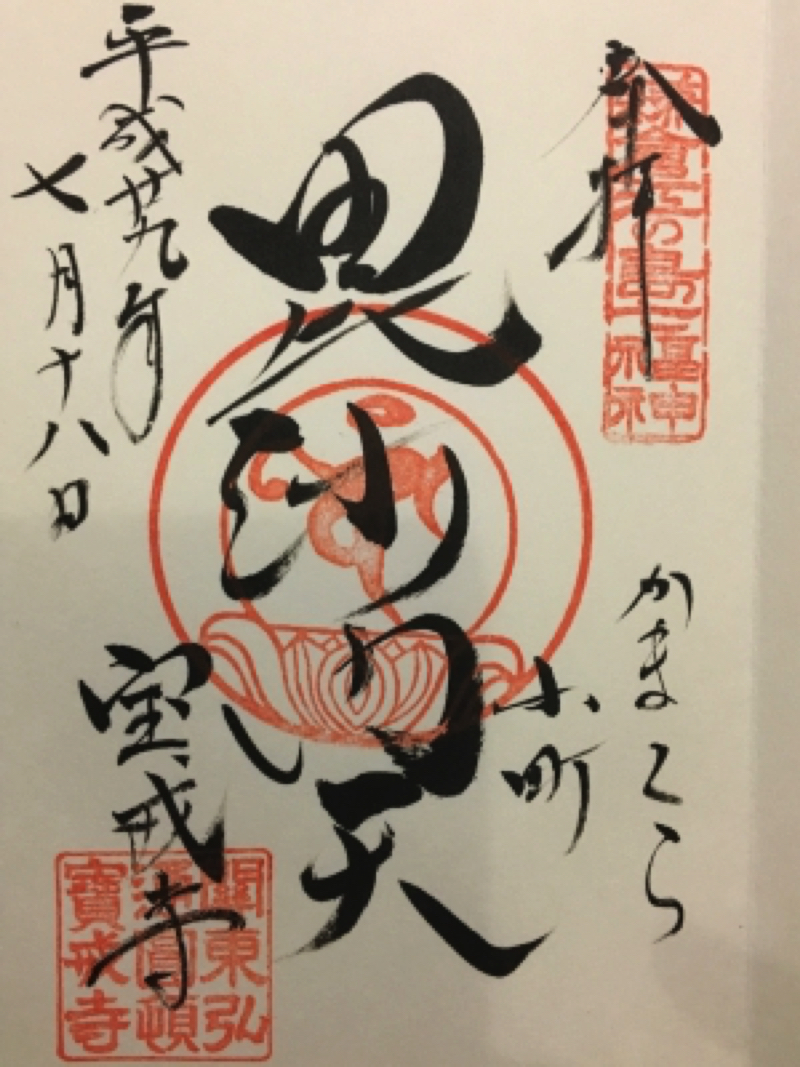 奉拝
鎌倉江の島七福神
かまくら
小町
毘沙門天
平成廿九年
七月十八日
宝戒寺
關東弘
通圓頓
寶戒寺